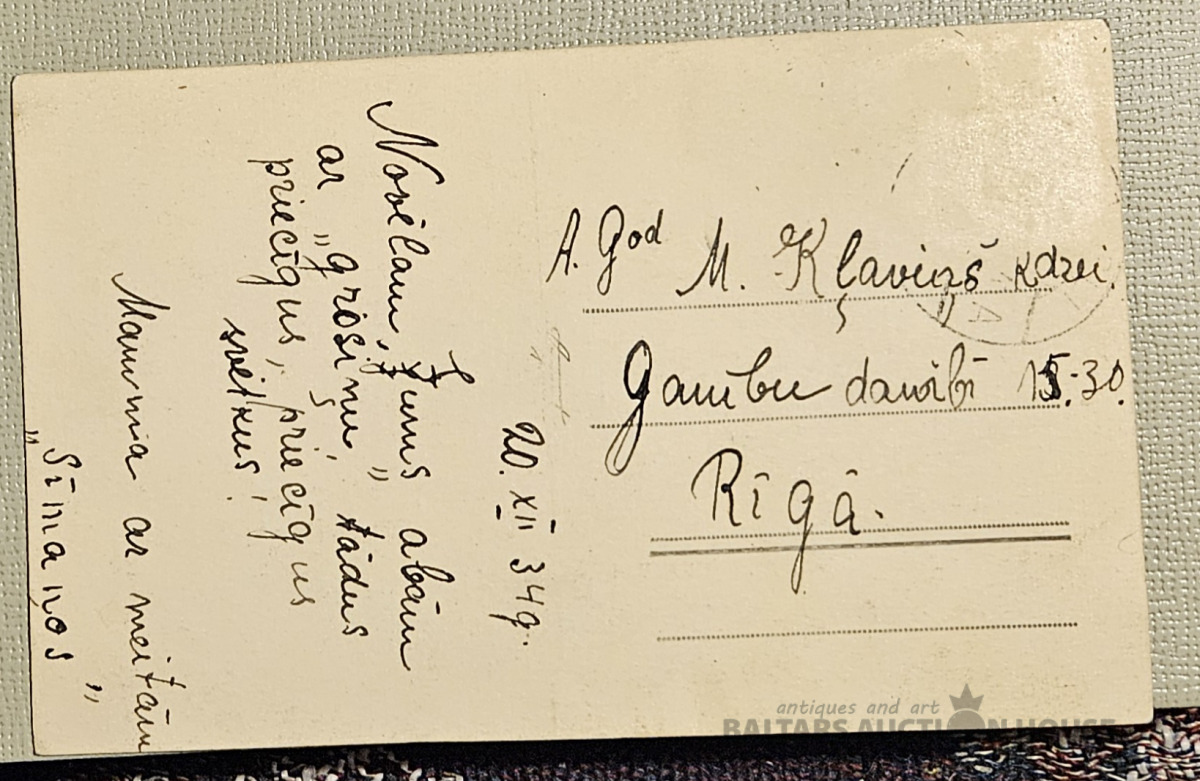 20. XII 34g.
Novēlam, Jums abām
ar „Grosiņu" tādus
priecīgus, priecīgus
svētkus!
Mamma ar meitām
„Sīmaņos"
A. God M. Kļaviņš kdzei.
Gambu dambī 15-30.
Rīgā.
antiques and art
BALTARS AUCTION HOUSE